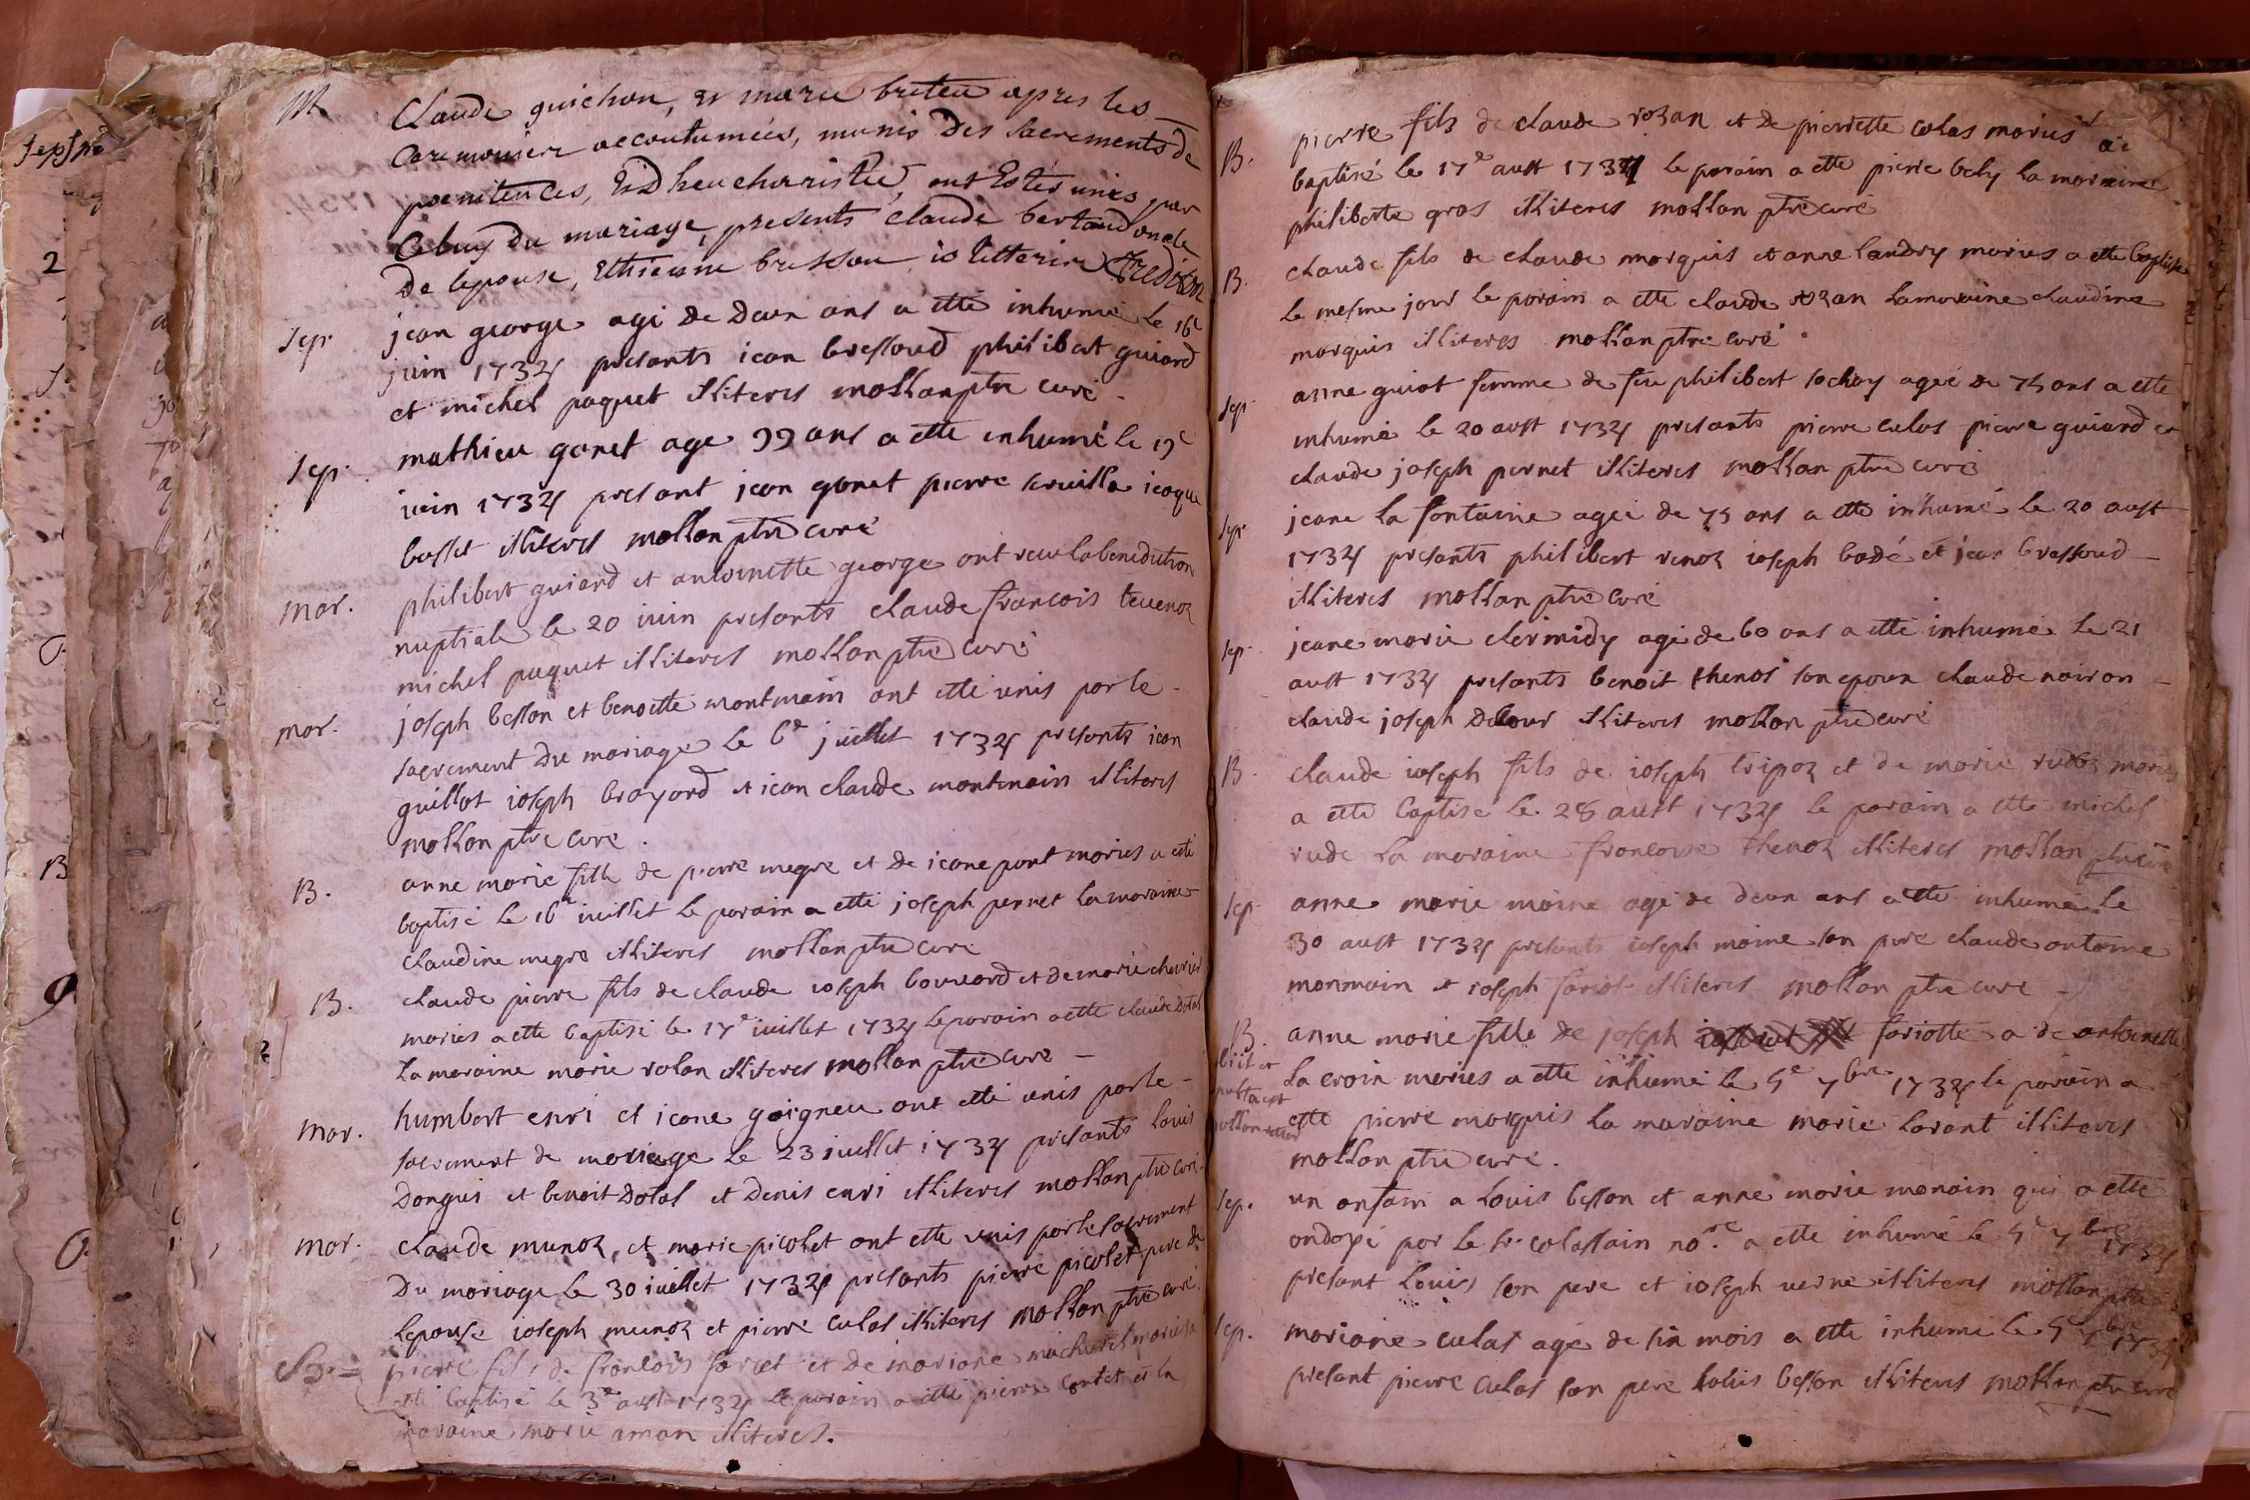 M Claude guichon, et marie breteu apres les
Ceremonies accoutumées, munis Des sacrements de
poenitences, Et D heucharistie, ont Esté unis par
Celuy Du mariage, presents claude bertaud oncle
De lepouse, Ethienne brisson
Sep. jean george agé De Deux ans a etté inhumé le 16e
juin 1734 presants jean bressoud philibert guiard
et michel paquet illiteres mollan ptre curé
Sep. mathieu gonet age 99 ans a ette inhumé le 19e
juin 1734 presant jean gonet pierre
bosset illiteres mollan ptre curé
mar. philibert guiard et antoinette george ont receu la benediction
nuptiale le 20 juin presants claude francois tevenoz
michel paquet illiteres mollan ptre curé
mar. joseph besson et benoitte montmain ont etté unis par le
sacrement Du mariage le 6e juillet 1734 presants jean
guillot joseph brayard et jean claude montmain illiteres
mollan ptre curé.
B. anne marie fille de pierre megre et de jeane pont maries a eté
baptisé le 16e juillet le parain a etté joseph pernet la maraine
claudine megre illiteres mollan ptre curé
B. claude pierre fils de claude joseph bouvard et de marie chevrier
maries a etté baptisé le 17e juillet 1734 le parain a etté claude Dotal
la maraine marie rolan illiteres mollan ptre curé
mar. humbert enri et jeane goigneu ont etté unis par le
sacrement de mariage le 23 juillet 1734 presants louis
Donguis et benoit Dotal et Denis enri illiteres mollan ptre curé
mar. claude munoz, et marie picolet ont etté unis par le sacrement
Du mariage le 30 juillet 1734 presants pierre picolet pere de
lepouse joseph munoz et pierre culas illiteres mollan ptre curé
B. pierre fils de francois et de mariane maries a
eté baptisé le 3e aust 1734 le parain a etté pierre et la
maraine marie illiteres.
B. pierre fils de claude rozan et De pierrette colas maries
baptisé le 17e aust 1734 le parain a etté pierre bely la maraine
philiberte gros illiteres mollan ptre curé
B. claude fils de claude marquis et anne landry maries a etté baptisé
le mesme jour le parain a etté claude rozan la maraine claudine
marquis illiteres mollan ptre curé.
Sep. anne guiot femme de feu philibert agée de 75 ans a etté
inhumé le 20 aust 1734 presants pierre culas pierre guiard et
claude joseph pernet illiteres mollan ptre curé
Sep. jeane la fontaine agée de 75 ans a etté inhumé le 20 aust
1734 presants philibert renoz joseph badé et jean bressoud
illiteres mollan ptre curé
Sep. jeane marie clermidy agé de 60 ans a etté inhumé le 21
aust 1734 presants benoit thenos son epoux claude noiron
claude joseph Delour illiteres mollan ptre curé
B. claude joseph fils de joseph tripoz et de marie maries
a etté baptisé le 28 aust 1734 le parain a etté michel
rude la maraine francoise thenoz illiteres mollan ptre curé
Sep. anne marie moine agé de deux ans a etté inhumé le
30 aust 1734 presants joseph moine son pere claude antoine
monmain et joseph illiteres mollan ptre curé
B. anne marie fille de joseph fariotte a de antoinette
la croix maries a etté inhumé le 5e 7bre 1734 le parain a
etté pierre marquis la maraine marie lorant illiteres
mollan ptre curé.
Sep. un enfain a Louis besson et anne marie monain qui a etté
ondoyé par le Sr colassain nore a etté inhumé le 5e 7bre 1734
presant Louis son pere et joseph verne illiteres mollan ptre
Sep. mariane culas agé de six mois a etté inhumé le 5e 7bre 1734
presant pierre culas son pere louis besson illiteres mollan ptre curé